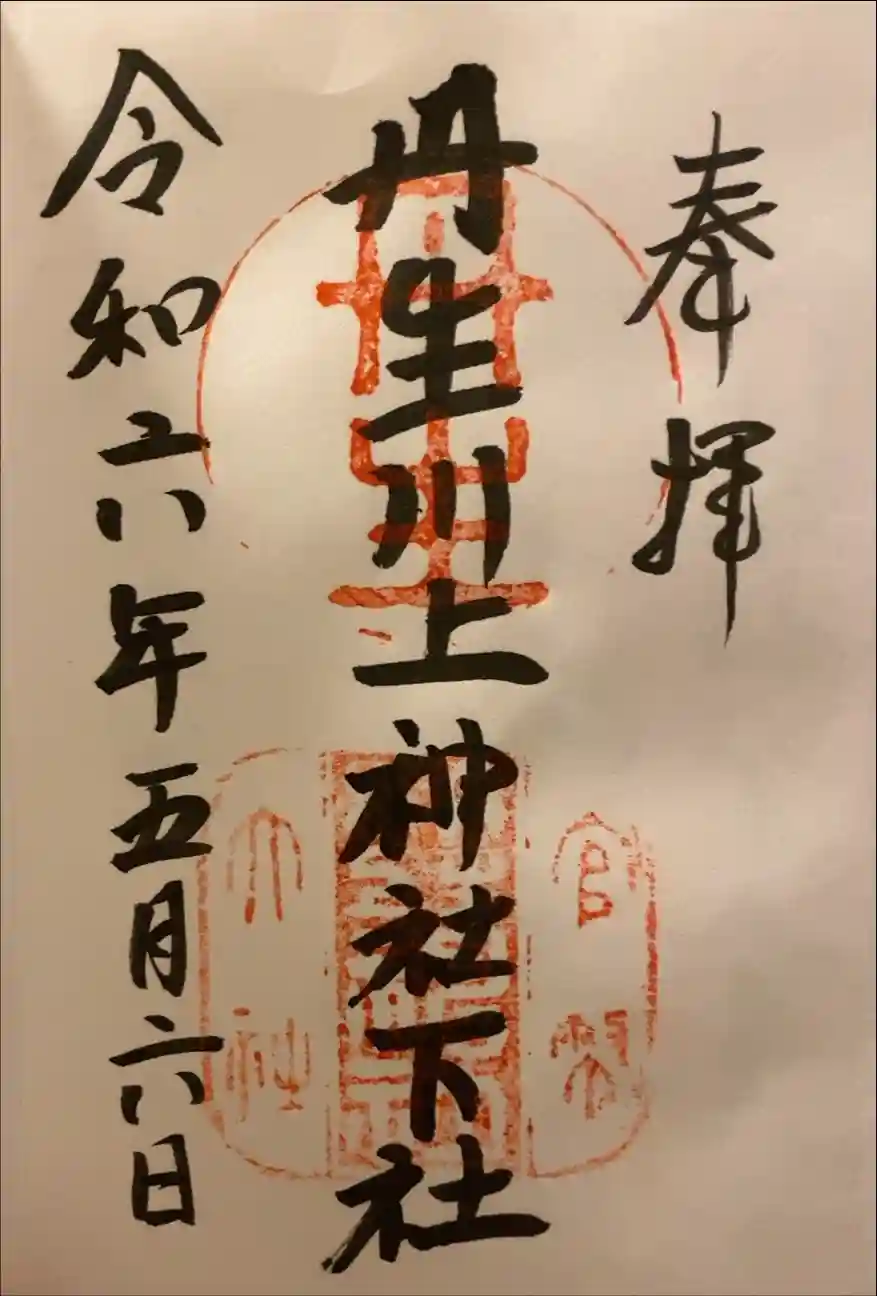 奉拝
丹生川上神社下社
令和六年五月六日
官幣
大社